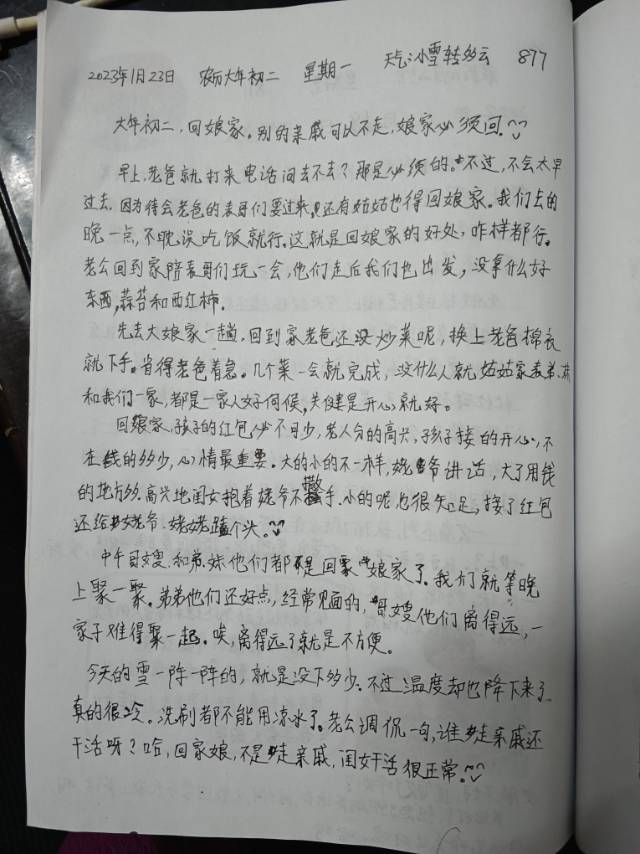 2023年1月23日 农历大年初二 星期一 天气:小雪转多云 877
大年初二,回娘家。别的亲戚可以不走,娘家必须回。
早上,老爸就打来电话问去不去?那是必须的。不过,不会太早
过去,因为待会老爸的表哥们要过来,还有姑姑也得回娘家。我们去的
晚一点,不耽误吃饭就行。这就是回娘家的好处,咋样都行。
老公回到家陪表哥们玩一会,他们走后我们也出发,没拿什么好
东西,蒜苔和西红柿。
先去大娘家一趟,回到家老爸还没炒菜呢,换上老爸棉衣
就下手。省得老爸着急。几个菜一会就完成,没什么人就姑姑家表弟
和我们一家,都是一家人好伺候,关健是开心就好。
回娘家,孩子的红包必不可少,老人分的高兴,孩子接的开心,不
在钱的多少,心情最重要。大的小的不一样,姥爷讲话,大了用钱
的地方多。高兴地闺女抱着姥爷不撒手。小的呢也很知足,接了红包
还给姥爷、姥姥磕个头。
中午哥嫂、和弟妹他们都是回娘家了。我们就等晚
上聚一聚。弟弟他们还好点,经常见面的,哥嫂他们离得远,一
家子难得聚一起。唉,离得远了就是不方便。
今天的雪一阵一阵的,就是没下多少。不过温度却也降下来了
真的很冷。洗刷都不能用凉水了。老公调侃一句,谁走亲戚还
干活呀?哈,回家娘,不是走亲戚,闺女干活很正常。